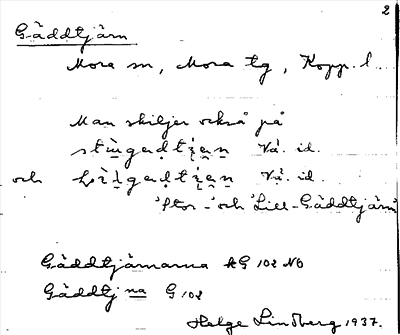 2
Gäddtjärn
Mora sn, Mora tg, Kopp. l.
Man skiljer också på
Vå. id.
och Vå. id.
'Stor-' och 'Lill-Gäddtjärn'
Gäddtjärnarna AG 102 NO
Gäddtj na G 102
Helge Lindberg 1937.